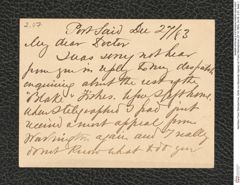 2.07
Port Said Dec 27/83
My dear Doctor
I was sorry not hear
from you in reply to my despatch
enquiring about the rest of the
"Blake" Fishes. before I left home
when I telegraphed I had just
received a most appeal from
Washington again and I really
do not know what to do you